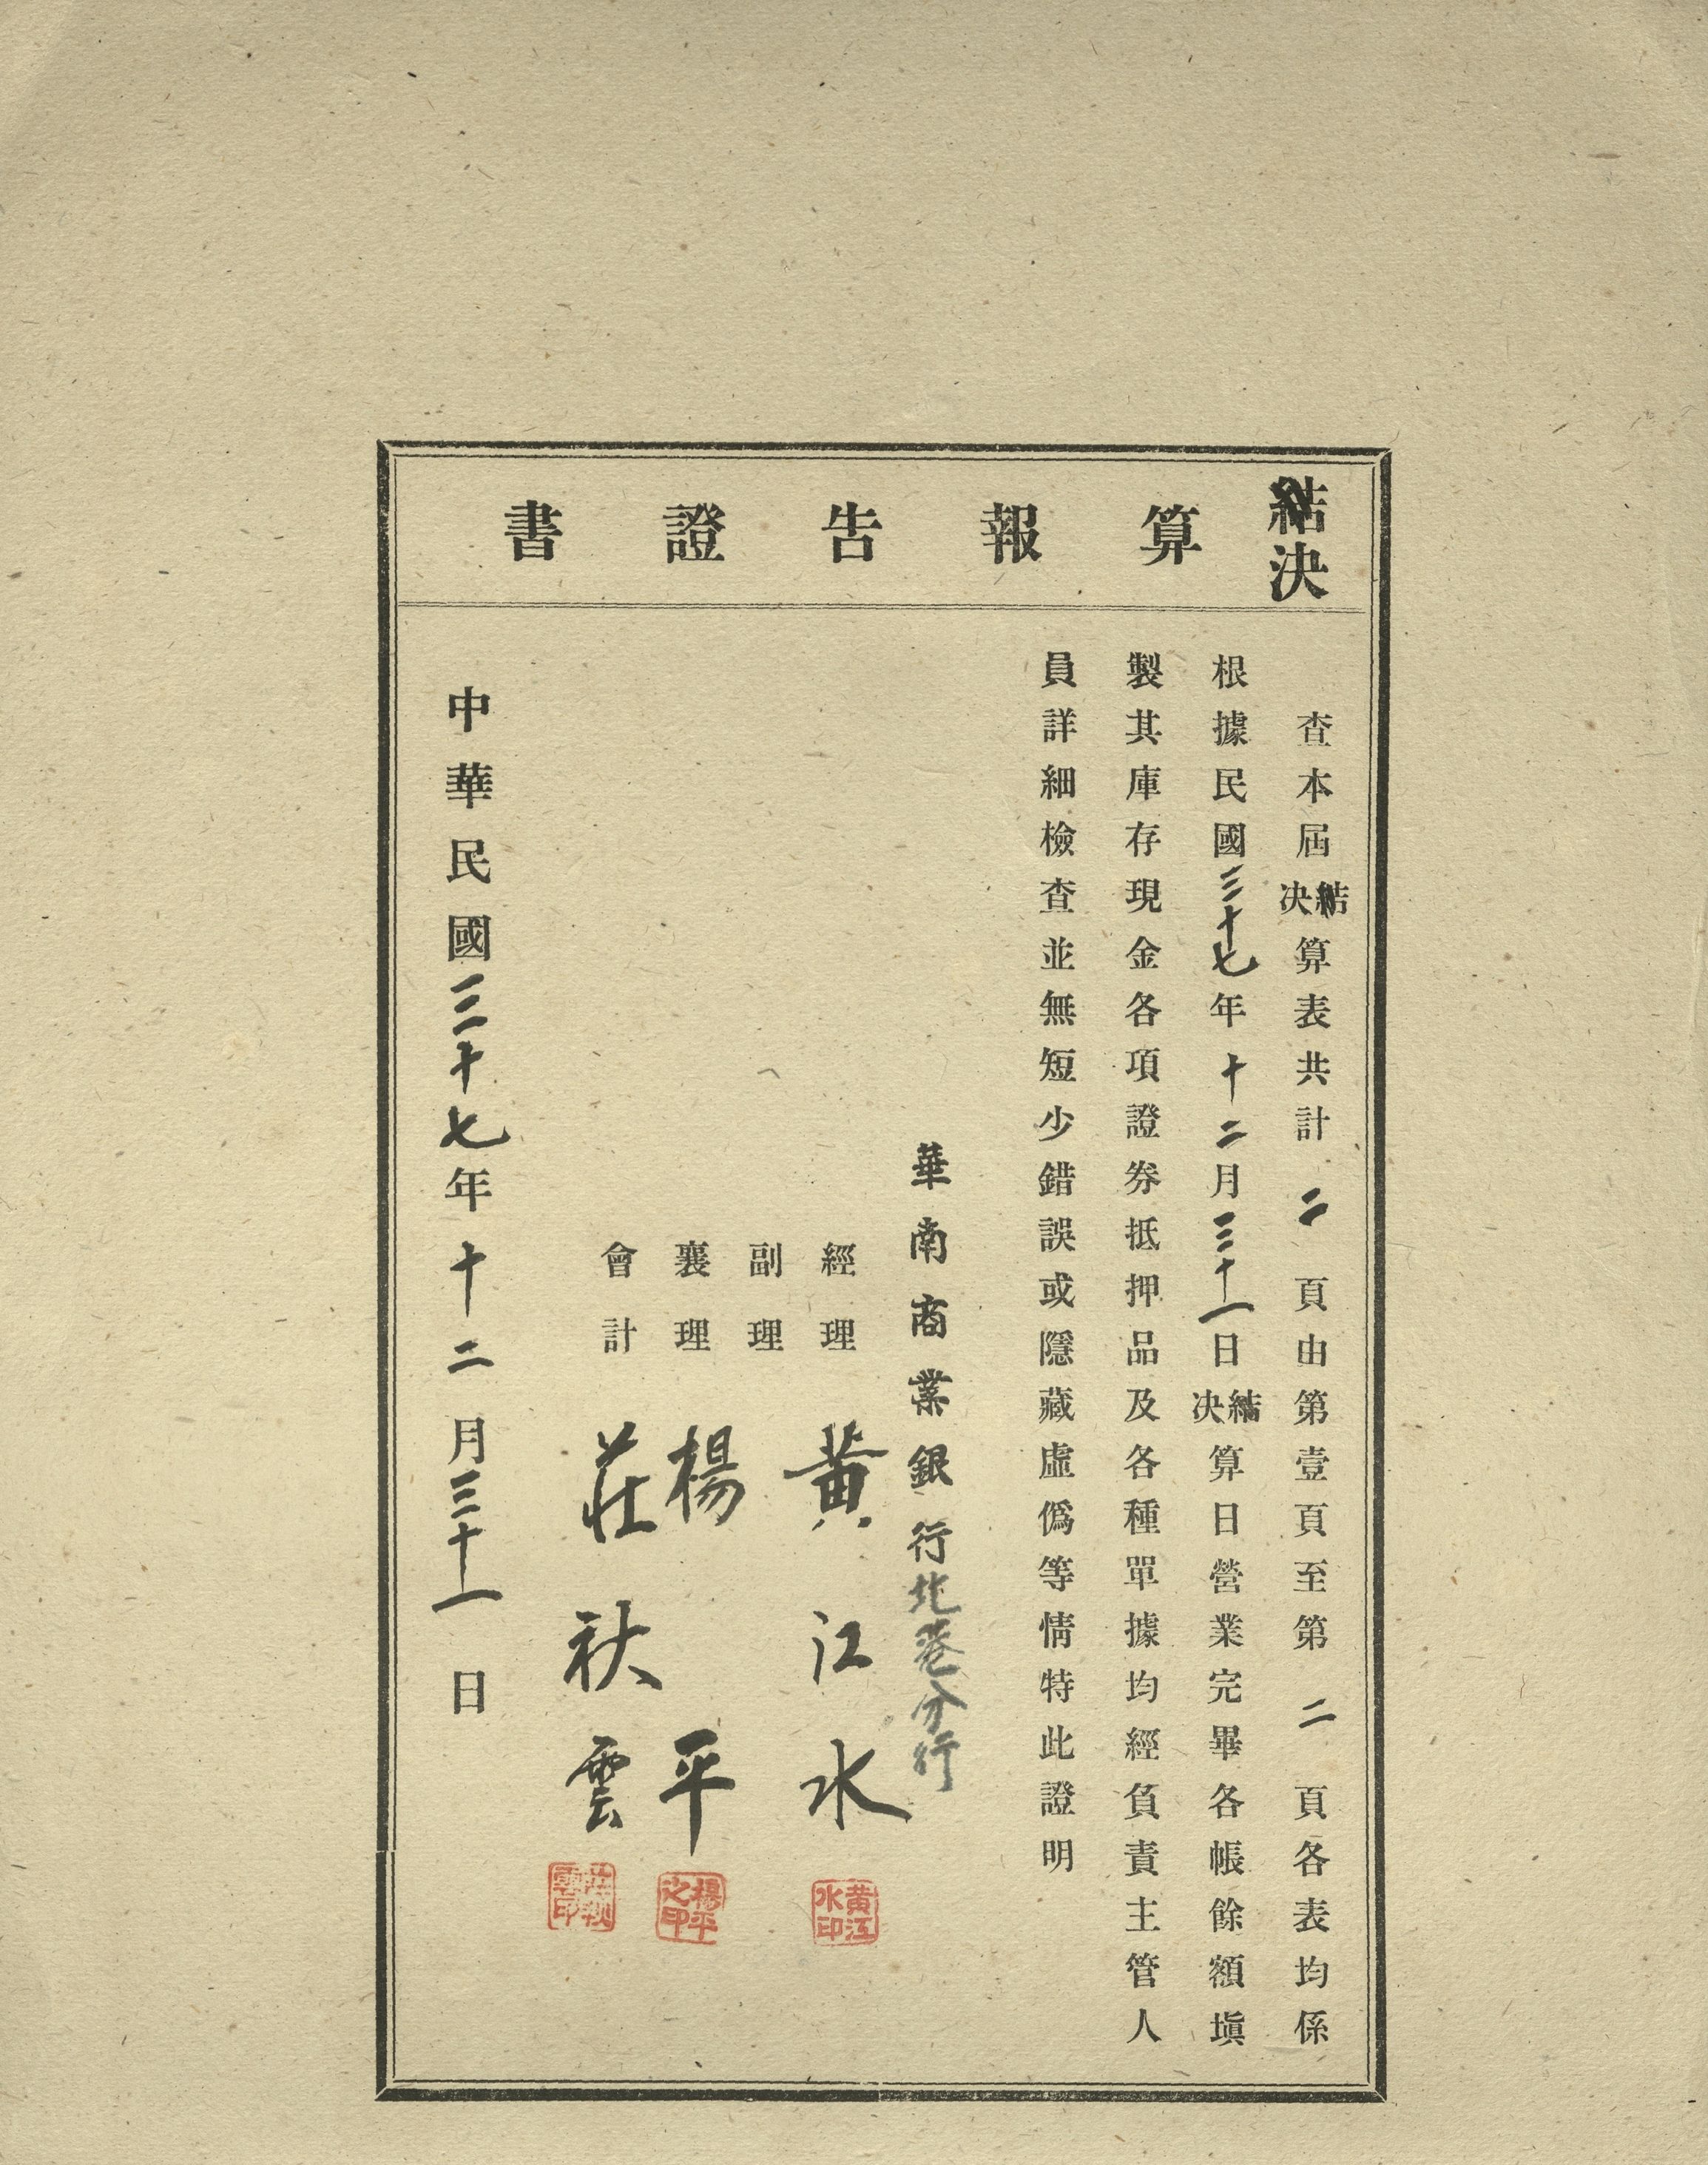 結決算報告證書
查本屆結決算表共計二頁由第壹頁至第二頁各表均係
根據民國三十七年十二月三十一日結決算日營業完畢各帳餘額塡
製其庫存現金各項證券抵押品及各種單據均經負責主管人
員詳細檢查並無短少錯誤或隱藏虛僞等情特此證明
華南商業銀行北港分行
經理 黃江水
黃江水印
副理
襄理 楊平
楊平之印
會計 莊秋雲
莊秋雲印
中華民國三十七年十二月三十一日